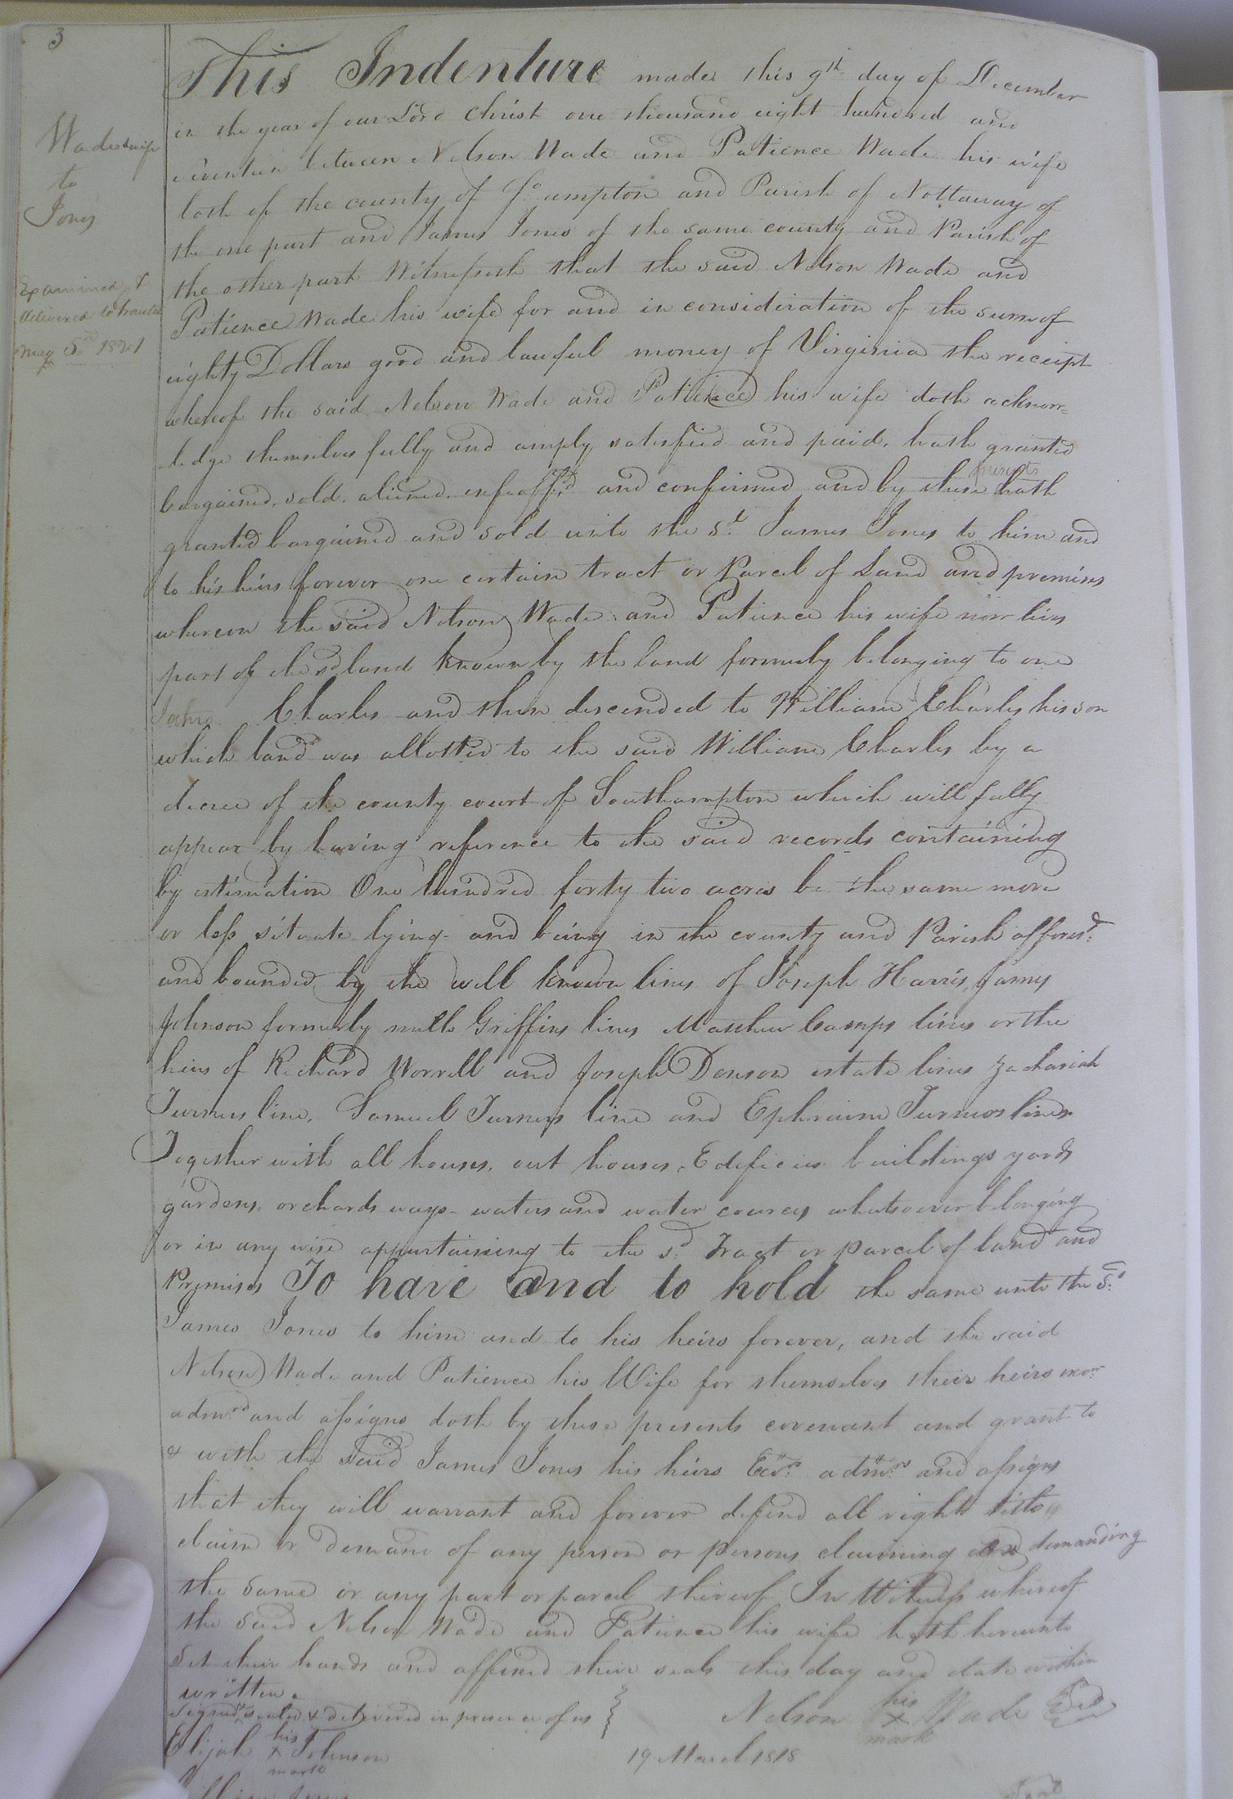 3
Wade & wife
to
Jones
Examined &
delivered to
May 5th 1821
This Indenture made this 9th day of December
in the year of our Lord Christ one thousand eight hundred and
seventeen between Nelson Wade and Patience Wade his wife
both of the county of So ampton and Parish of Nottaway of
the one part and James Jones of the same county and Parish of
the other part Witnesseth that the said Nelson Wade and
Patience Wade his wife for and in consideration of the sum of
eighty Dollars good and lawful money of Virginia the receipt
whereof the said Nelson Wade and Patience his wife doth acknow=
ledge themselves fully and amply satisfied and paid, hath granted
bargained, sold, aliened, enfeoff'd and confirmed and by these presents hath
granted bargained and sold unto the sd. James Jones to him and
to his heirs forever one certain tract or Parcel of Land and premises
whereon the said Nelson Wade and Patience his wife now lives
part of the sd land known by the land formerly belonging to one
John Charles and then descended to William Charles his son
which land was allotted to the said William Charles by a
decree of the county court of Southampton which will fully
appear by having reference to the said records containing
by estimation One hundred forty two acres be the same more
or less situate lying and being in the county and Parish afforesd.
and bounded by the well known lines of Joseph Harris, James
Johnson formerly Griffins lines Matthew Camps lines or the
heirs of Richard Worrell and Joseph Denson estate lines Zachariah
Turners line, Samuel Turners line and Ephraim Turners lines
Together with all houses, out houses, Edificies buildings yards
gardens, orchards ways waters and water courses whatsoever belonging
or in any wise appurtaining to the sd. Tract or parcel of land and
Premises To have and to hold the same unto the sd.
James Jones to him and to his heirs forever, and the said
Nelson Wade and Patience his Wife for themselves their heirs exors
admrs and assigns doth by these presents covenant and grant to
& with the said James Jones his heirs Exrs. admrs and assigns
that they will warrant and forever defend all right title
claim or demand of any person or persons claiming or demanding
the same or any part or parcel thereof In Witness whereof
the said Nelson Wade and Patience his wife hath hereunto
Set their hands and affixed their seals this day and date within
written.
Signd. sealed & delivered in presence of us } Nelson his x mark Wade Seal
Elijah his x mark Johnson
19 March 1818